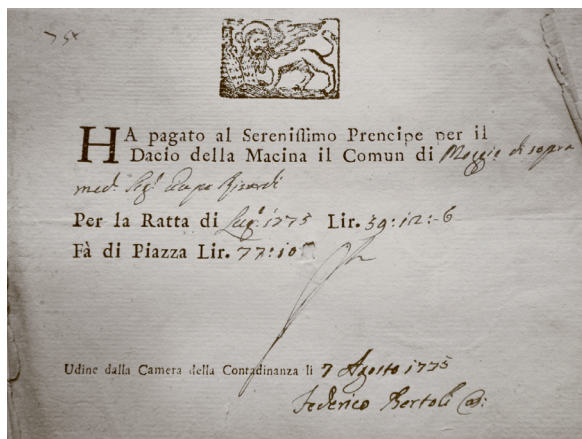 HA pagato al Sereniſſimo Prencipe per il
Dacio della Macina il Comun di Moggio di sopra
med.
Per la Ratta di Lug.º 1775 Lir. 59:12:-6
Fà di Piazza Lir. 77:10
Udine dalla Camera della Contadinanza li 7 Agosto 1775
Federico Bertoli